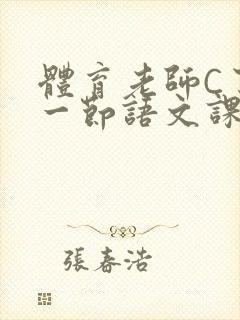 體育老師C
一節語文課
張春浩